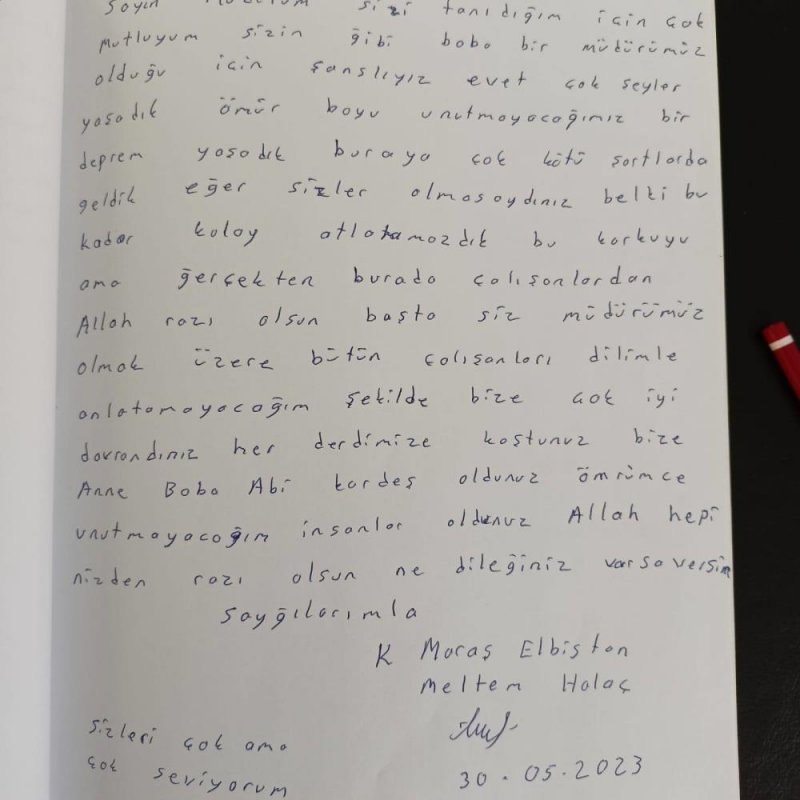 Sayın Müdürüm sizi tanıdığım için çok
mutluyum sizin gibi baba bir müdürümüz
olduğu için şanslıyız evet çok şeyler
yaşadık ömür boyu unutmayacağımız bir
deprem yaşadık buraya çok kötü şartlarda
geldik eğer sizler olmasaydınız belki bu
kadar kolay atlatamazdık bu korkuyu
ama gerçekten burada çalışanlardan
Allah razı olsun başta siz müdürümüz
olmak üzere bütün çalışanları dilimle
anlatamayacağım şekilde bize çok iyi
davrandınız her derdimize koştunuz bize
Anne Baba Abi kardeş oldunuz ömrümce
unutmayacağım insanlar oldunuz Allah hepi
nizden razı olsun ne dileğiniz varsa versin
saygılarımla
K Maraş Elbistan
Meltem Halaç
sizleri çok ama
çok seviyorum
30.05.2023